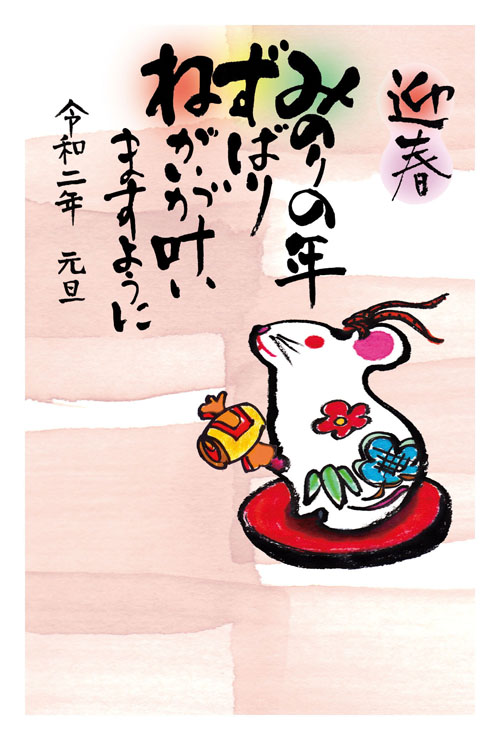 迎春
みのりの年
ずばり
ねがいが叶い
ますように
令和二年 元旦